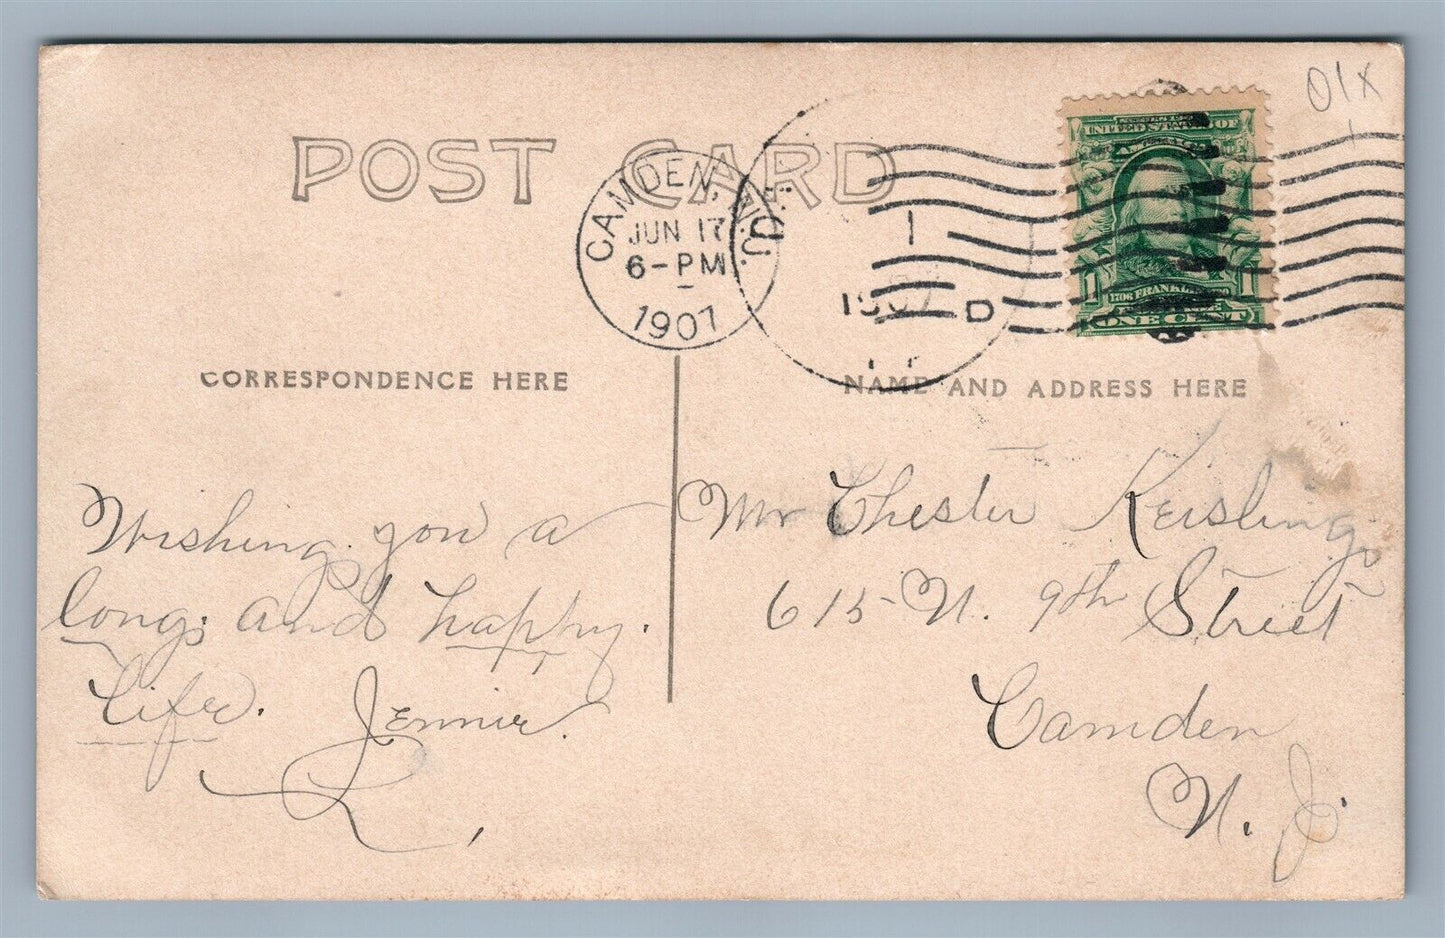 01X
POST CARD
CAMDEN, N.J.
JUN 17
6-PM
1907
1
1907
D
UNITED STATES OF
AMERICA
1 1706 FRANKLIN 1790 1
ONE CENT
CORRESPONDENCE HERE
NAME AND ADDRESS HERE
Wishing you a
long and happy.
Life. Jennie.
Mr Chester Keisling
615 N. 9th Street
Camden
N. J.